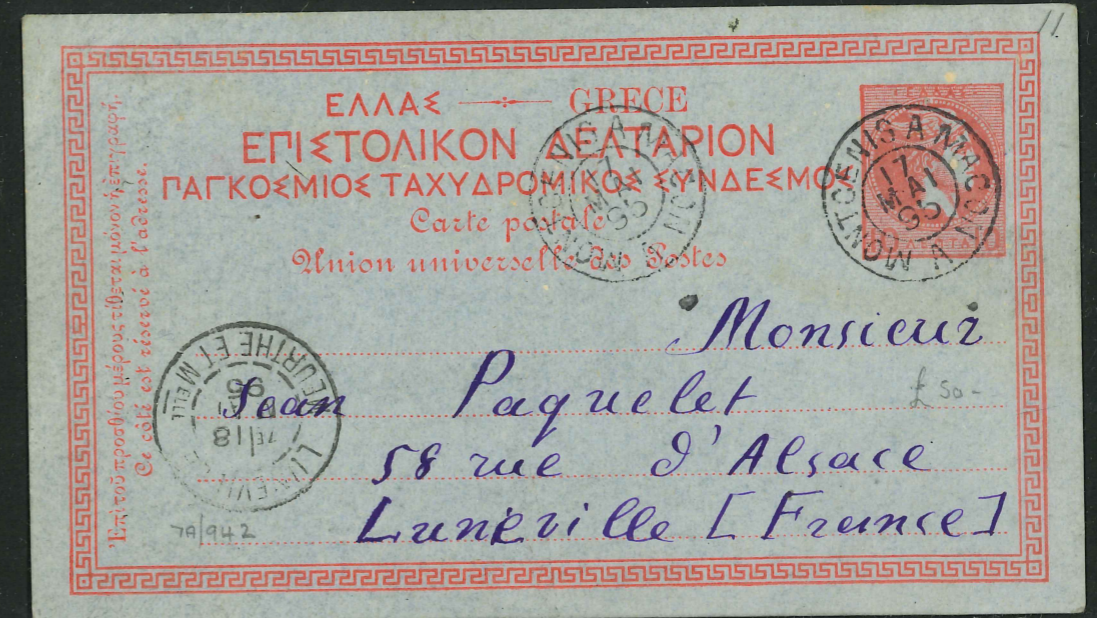 11
ΕΛΛΑΣ GRECE
ΕΠΙΣΤΟΛΙΚΟΝ ΔΕΛΤΑΡΙΟΝ
ΠΑΓΚΟΣΜΙΟΣ ΤΑΧΥΔΡΟΜΙΚΟΣ ΣΥΝΔΕΣΜΟΣ
Carte postale
Union universelle des Postes
Ἐπὶ τοῦ προσθίου μέρους τίθεται μόνον ἡ ἐπιγραφή.
Ce côté est réservé à l'adresse.
MONTCENIS A MACON A
17
MAI
95
MONTCENIS A MACON A
17
MAI
95
ΛΕΠΤΑ
Monsieur
Jean Paquelet
£50-
58 rue d'Alsace
Lunéville [France]
LUNEVILLE
MEURTHE ET MELLE
7E/18
MAI
95
7A/942